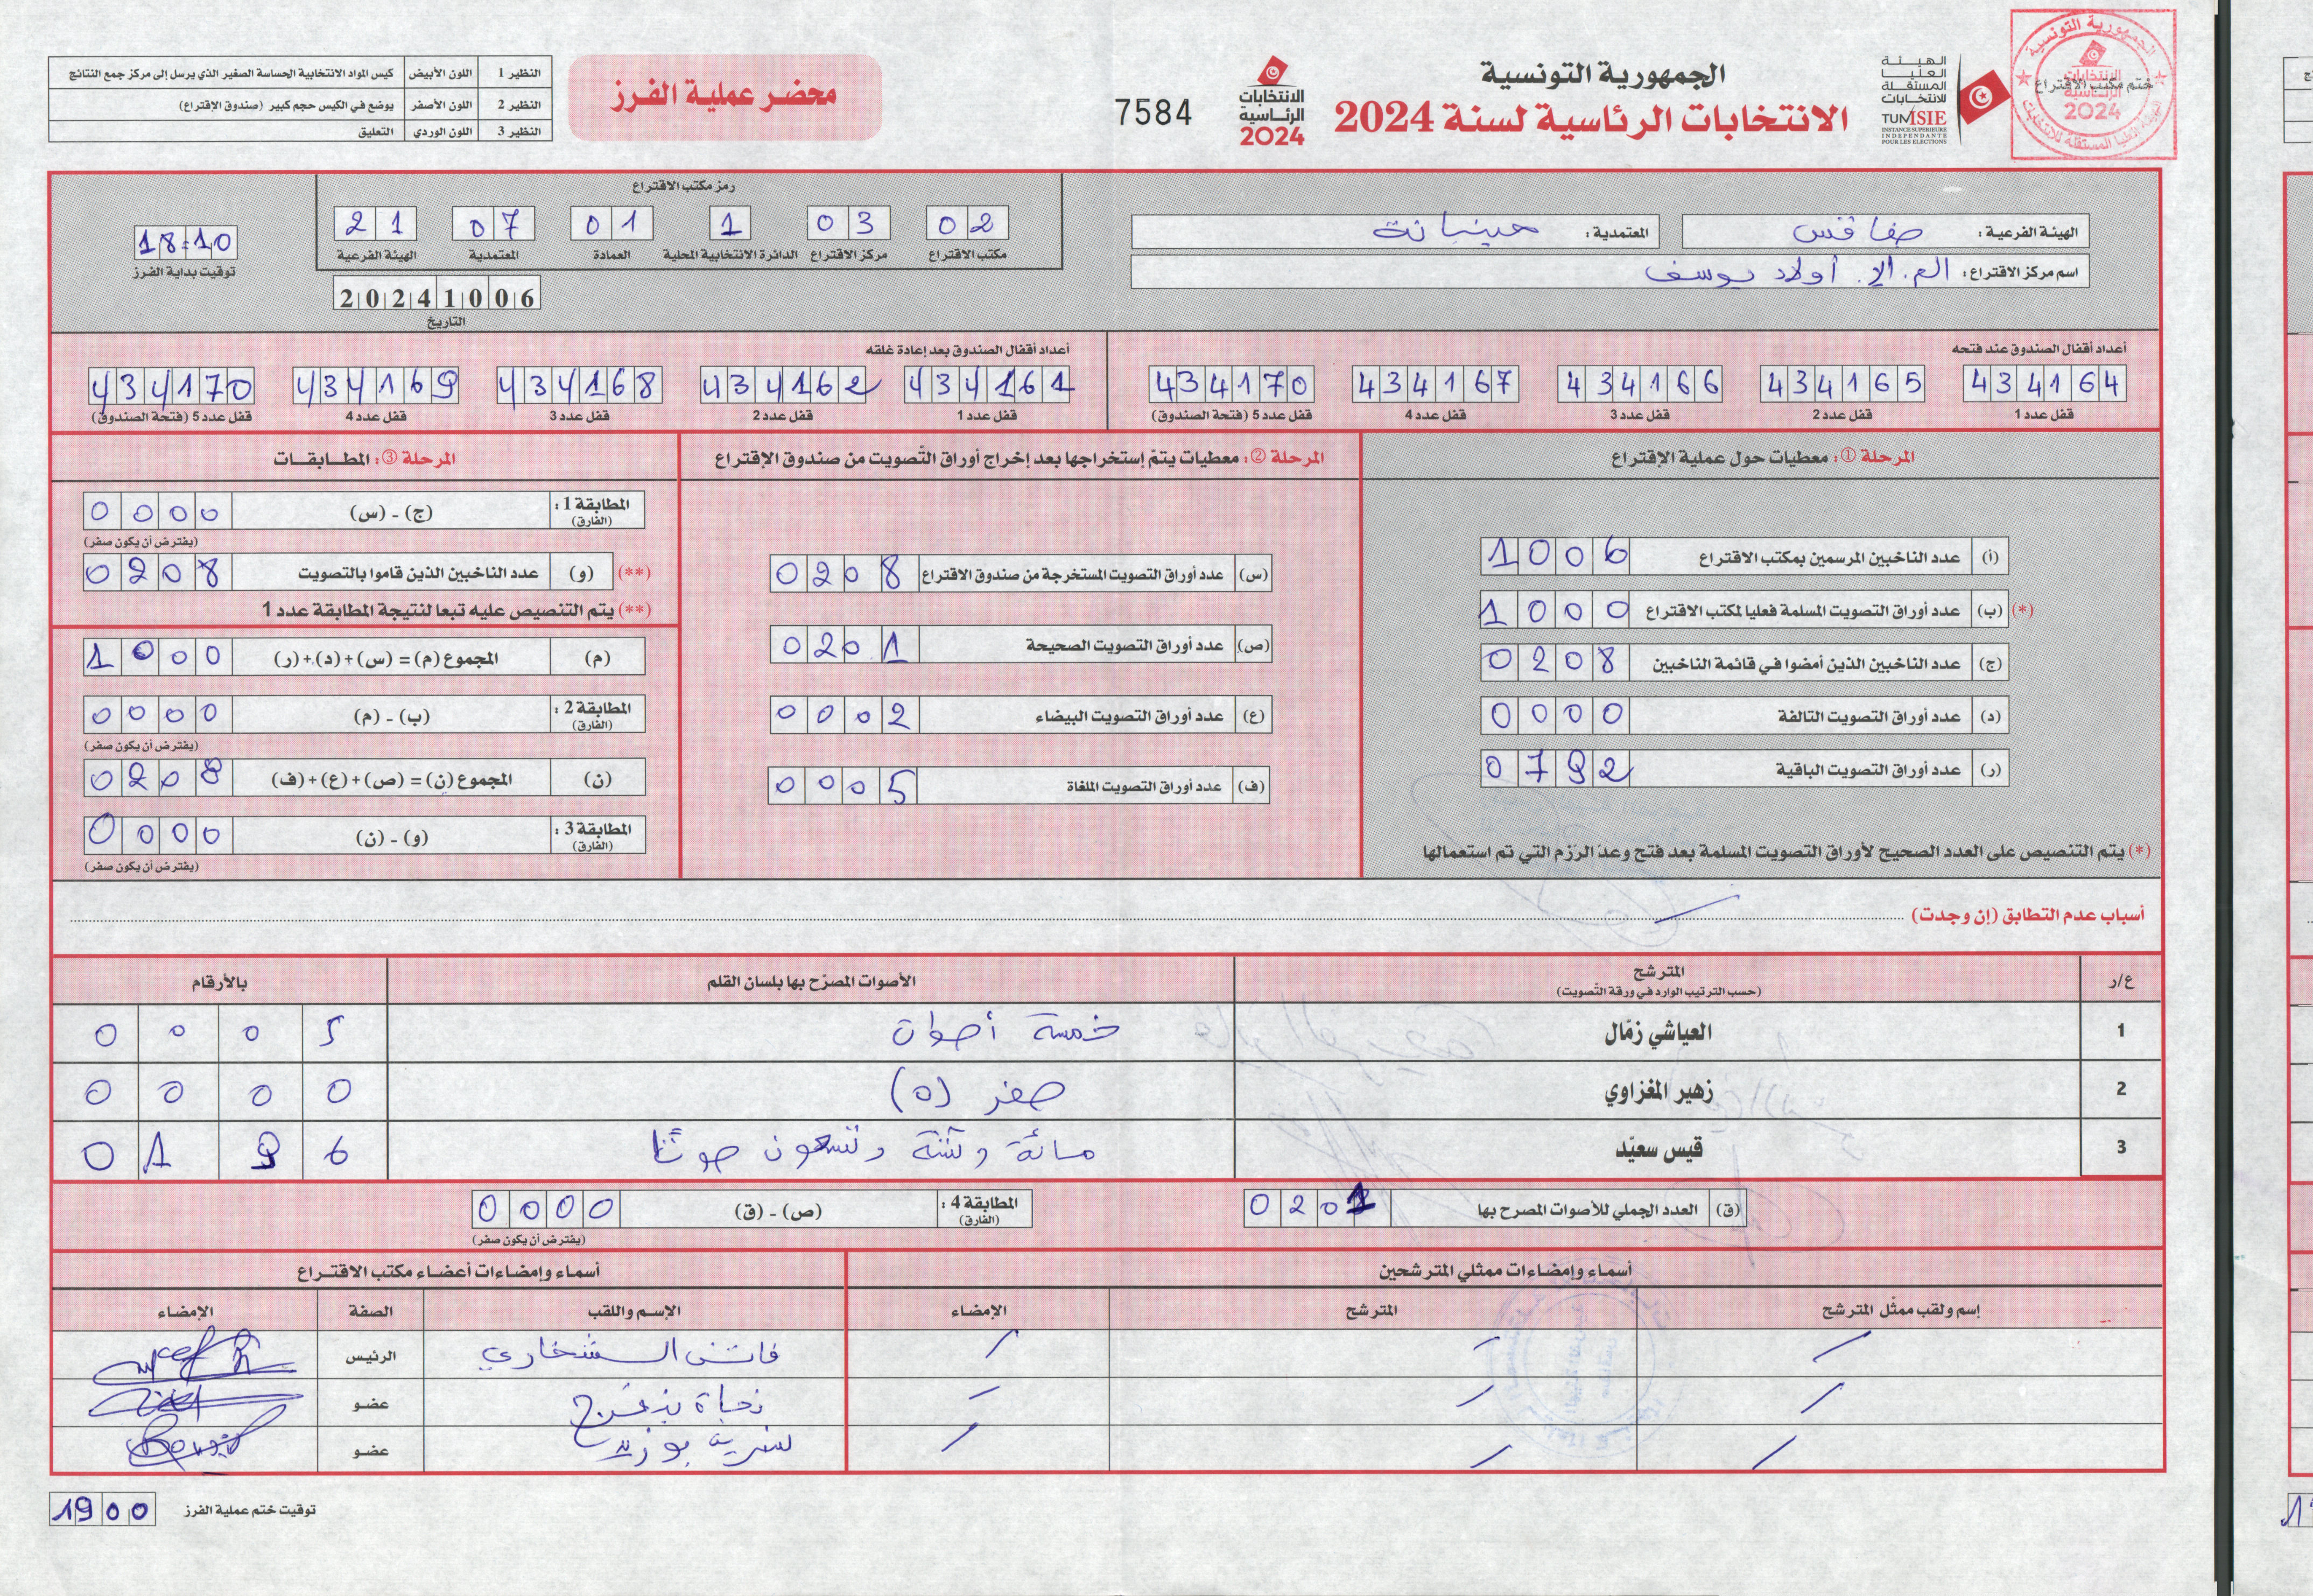 الجمهورية التونسية
الانتخابات الرئاسية لسنة 2024
الهيئة العليا المستقلة للانتخابات
TUNISIE
INSTANCE SUPERIEURE INDEPENDANTE POUR LES ELECTIONS
الجمهورية التونسية
ختم مكتب الاقتراع
الانتخابات الرئاسية 2024
الانتخابات الرئاسية 2024
7584
محضر عملية الفرز
النظير 1 اللون الأبيض كيس المواد الانتخابية الحساسة الصغير الذي يرسل إلى مركز جمع النتائج
النظير 2 اللون الأصفر يوضع في الكيس حجم كبير (صندوق الاقتراع)
النظير 3 اللون الوردي التعليق
الهيئة الفرعية : صفاقس
المعتمدية : منيانة
اسم مركز الاقتراع : الم. الإ. أولاد يوسف
رمز مكتب الاقتراع
مكتب الاقتراع 02
مركز الاقتراع 03
الدائرة الانتخابية المحلية 1
العمادة 01
المعتمدية 07
الهيئة الفرعية 21
20241006
التاريخ
18:10
توقيت بداية الفرز
أعداد أقفال الصندوق عند فتحه
434164 434165 434166 434167 434170
قفل عدد 1 قفل عدد 2 قفل عدد 3 قفل عدد 4 قفل عدد 5 (فتحة الصندوق)
أعداد أقفال الصندوق بعد إعادة غلقه
434161 434162 434168 434169 434170
قفل عدد 1 قفل عدد 2 قفل عدد 3 قفل عدد 4 قفل عدد 5 (فتحة الصندوق)
المرحلة ①: معطيات حول عملية الاقتراع
(أ) عدد الناخبين المرسمين بمكتب الاقتراع 1006
(*) (ب) عدد أوراق التصويت المسلمة فعليا لمكتب الاقتراع 1000
(ج) عدد الناخبين الذين أمضوا في قائمة الناخبين 0208
(د) عدد أوراق التصويت التالفة 0000
(ر) عدد أوراق التصويت الباقية 0792
(*) يتم التنصيص على العدد الصحيح لأوراق التصويت المسلمة بعد فتح وعدّ الرّزم التي تم استعمالها
المرحلة ②: معطيات يتمّ إستخراجها بعد إخراج أوراق التّصويت من صندوق الإقتراع
(س) عدد أوراق التصويت المستخرجة من صندوق الاقتراع 0208
(ص) عدد أوراق التصويت الصحيحة 0201
(ع) عدد أوراق التصويت البيضاء 0002
(ف) عدد أوراق التصويت الملغاة 0005
المرحلة ③: المطــابقــات
المطابقة 1 : (الفارق) (ج) - (س) 0000
(يفترض أن يكون صفر)
(**) (و) عدد الناخبين الذين قاموا بالتصويت 0208
(**) يتم التنصيص عليه تبعا لنتيجة المطابقة عدد 1
(م) المجموع (م) = (س)+(د)+(ر) 1000
المطابقة 2 : (الفارق) (ب) - (م) 0000
(يفترض أن يكون صفر)
(ن) المجموع (ن) = (ص)+(ع)+(ف) 0208
المطابقة 3 : (الفارق) (و) - (ن) 0000
(يفترض أن يكون صفر)
أسباب عدم التطابق (إن وجدت)
ع/ر المترشح (حسب الترتيب الوارد في ورقة التّصويت) الأصوات المصرّح بها بلسان القلم بالأرقام
1 العياشي زمّال خمسة أصوات 0005
2 زهير المغزاوي صفر (0) 0000
3 قيس سعيّد مائة وستة وتسعون صوتا 0196
(ق) العدد الجملي للأصوات المصرح بها 0201
المطابقة 4 : (الفارق) (ص) - (ق) 0000
(يفترض أن يكون صفر)
أسماء وإمضاءات ممثلي المترشحين
إسم ولقب ممثّل المترشح المترشح الإمضاء
أسماء وإمضاءات أعضاء مكتب الاقتراع
الإسم واللقب الصفة الإمضاء
الرئيس
نجاة عضو
عضو
توقيت ختم عملية الفرز 1900